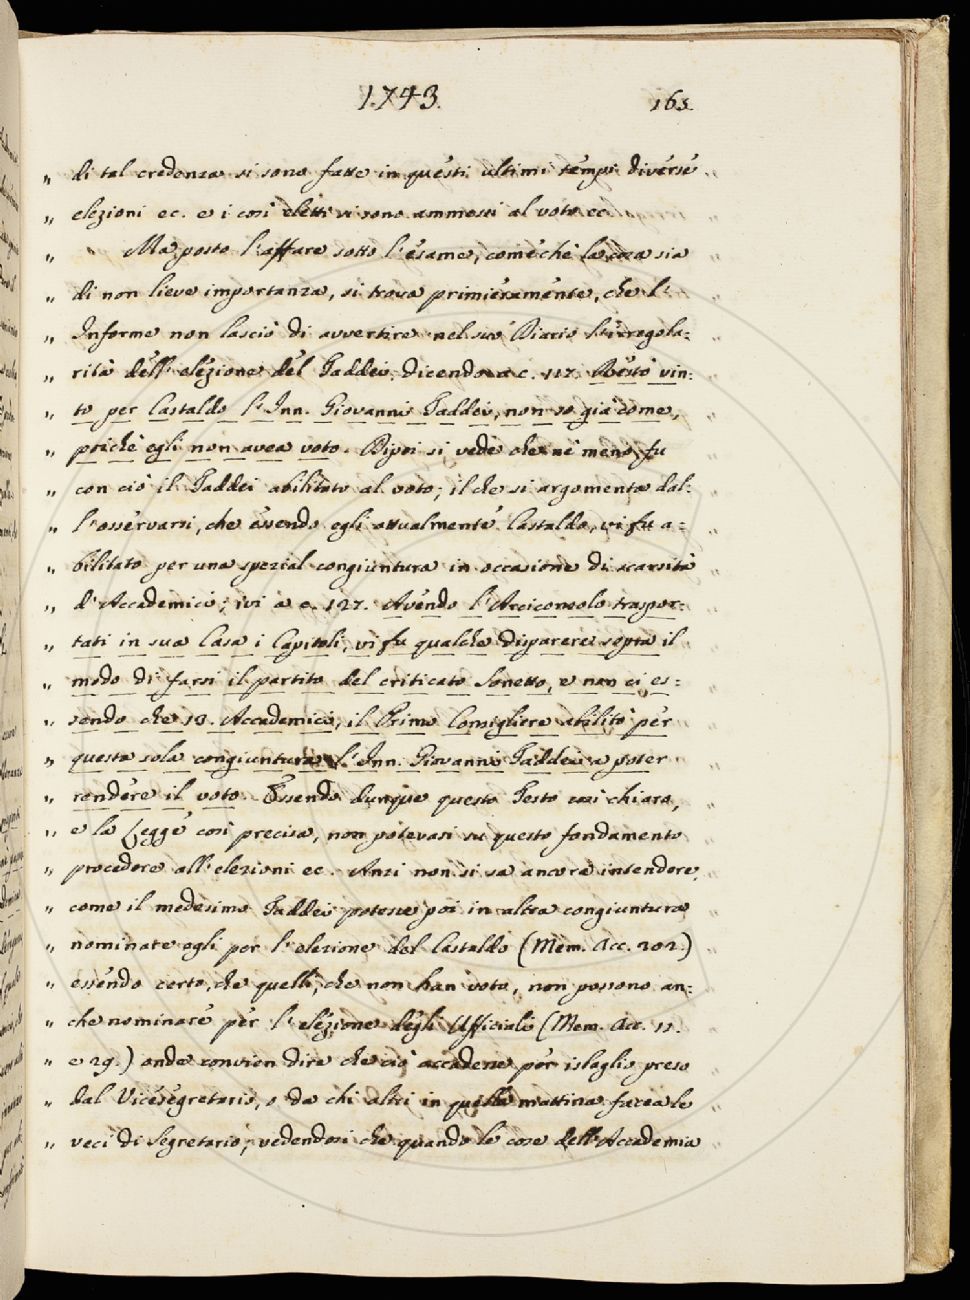 1743.
163.
„ di tal credenza si sono fatte in questi ultimi tempi diverse
„ elezioni ec. e i così eletti si sono ammessi al voto ec.
„ Ma posto l'affare sotto l'esame, comechè la cosa sia
„ di non lieve importanza, si trova primieramente, che l'
„ Informe non lasciò di avvertire nel suo Diario l'irregola:
„ rità dell'elezione del Taddei, dicendo a c. 117. Restò vin:
„ to per Castaldo l'Inn. Giovanni Taddei, non so già come,
„ poichè egli non avea voto. Dipoi si vede che nè meno fu
„ con ciò il Taddei abilitato al voto; il che si argomenta dal:
„ l'osservarsi, che essendo egli attualmente Castaldo, vi fu a:
„ bilitato per una spezial congiuntura in occasione di scarsità
„ d'Accademici; ivi a c. 127. Avendo l'Arciconsolo traspor:
„ tati in sua Casa i Capitoli, vi fu qualche disparere sopra il
„ modo di farsi il partito del criticato Sonetto, e non ci es:
„ sendo che 13. Accademici, il Primo Consigliere abilitò per
„ questa sola congiuntura l'Inn. Giovanni Taddei a poter
„ rendere il voto. Essendo dunque questo Testo così chiaro,
„ e la Legge così precisa, non potevasi su questo fondamento
„ procedere all'elezioni ec. Anzi non si sa ancora intendere,
„ come il medesimo Taddei potesse poi in altra congiuntura
„ nominare egli per l'elezione del Castaldo (Mem. Acc. 202.)
„ essendo certo, che quelli, che non han voto, non possono an:
„ che nominare per l'elezione degli Ufficiali (Mem. Acc. 12.
„ e 29.) onde convien dire che ciò accadesse per isbaglio preso
„ dal Vicesegretario, o da chi altri in quella mattina facea le
„ veci di Segretario; vedendosi che quando le cose dell'Accademia